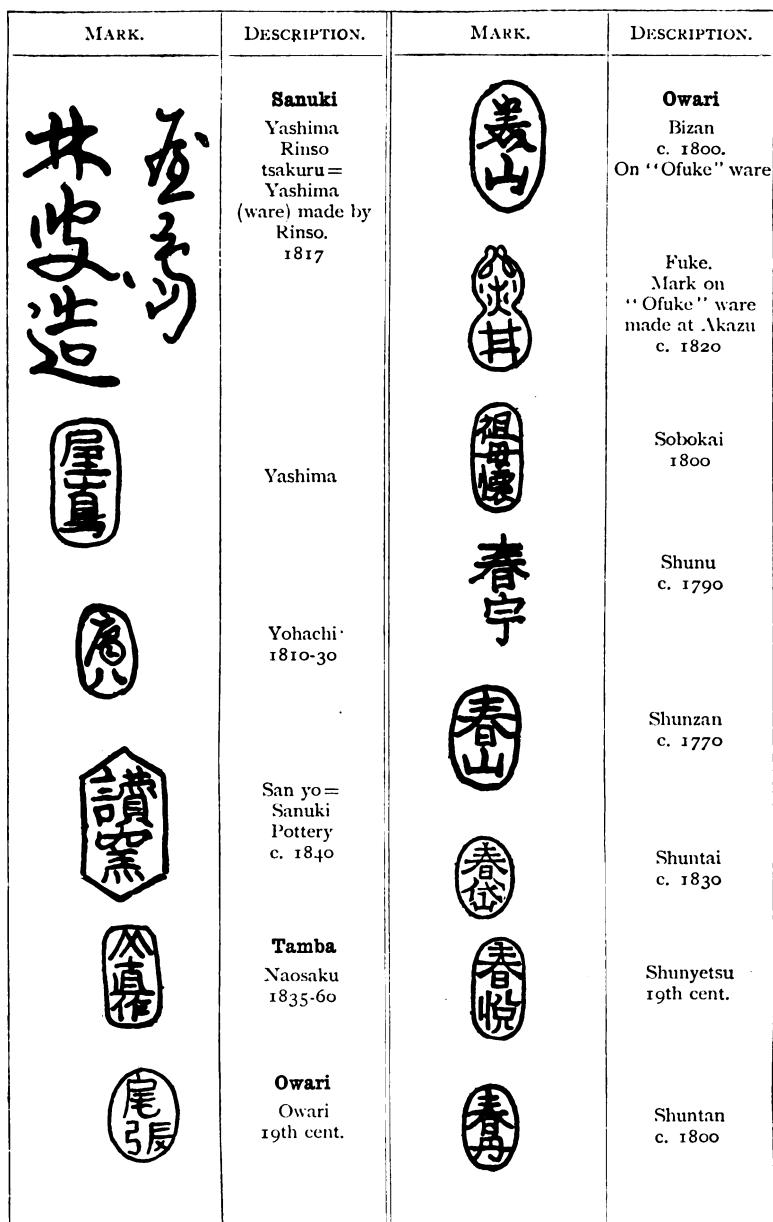 MARK.
DESCRIPTION.
屋島
林叟造
Sanuki
Yashima
Rinso
tsakuru=
Yashima
(ware) made by
Rinso.
1817
屋島
Yashima
八
Yohachi
1810-30
讃窯
San yo=
Sanuki
Pottery
c. 1840
直作
Tamba
Naosaku
1835-60
尾張
Owari
Owari
19th cent.
MARK.
DESCRIPTION.
美山
Owari
Bizan
c. 1800.
On "Ofuke" ware
Fuke.
Mark on
"Ofuke" ware
made at Akazu
c. 1820
祖母懷
Sobokai
1800
春宇
Shunu
c. 1790
春山
Shunzan
c. 1770
春岱
Shuntai
c. 1830
春悦
Shunyetsu
19th cent.
春丹
Shuntan
c. 1800